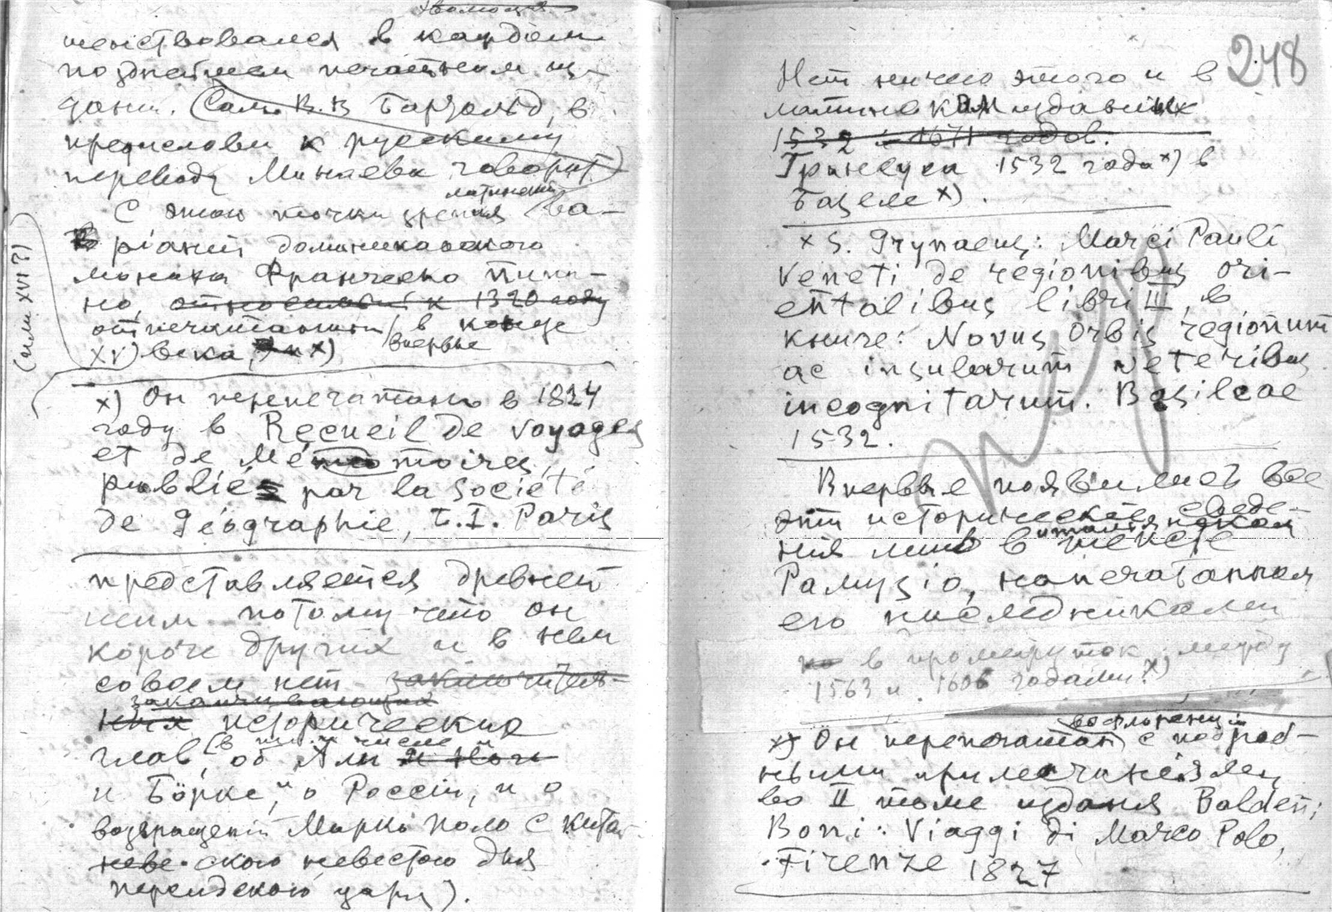 шенствовался в каждом
позднейшем печатном из-
дании. (Сам В.В Бартольд, в
предисловии к русскому
переводу Минаева говорит)
С этой точки зрения латинский ва-
ріант доминиканского
монаха Франческо Пипи-
но относимый к 1320 году
отпечатанный впервые в конце
XV) века, x)
(или XVI?)
x) Он перепечатан в 1824
году в Recueil de voyages
et de Mémoires,
publiés par la Société
de Géographie, t.I. Paris
представляется древней
шим потому что он
короче других и в нем
совсем нет заключитель-
ных заканчивающих исторических
глав, (в том числе об Али
и Бöркѣ," о Россіи, и о
возвращеніи Марко Поло с китай
ского невестою для
персидского царя).
248
Нет ничего этого и в
латинском издании
1532 и 1671 годов.
Гринеуса 1532 года x) в
Базеле x).
x S. Grynaeus: Marci Pauli
Veneti de regionibus ori-
entalibus libri III, в
книге: Novus Orbis regionum
ac insularum veteribus
incognitarum. Basileae
1532.
Впервые появились все
эти исторические сведе-
ния лишь в итальянском тексте
Рамузіо, напечатанном
его наследниками
в промежуток между
1563 и 1606 годами x)
x) Он перепечатан во Флоренціи с подроб-
ными примечаніями
во II томе изданія Baldelli
Boni: Viaggi di Marco Polo,
Firenze 1827